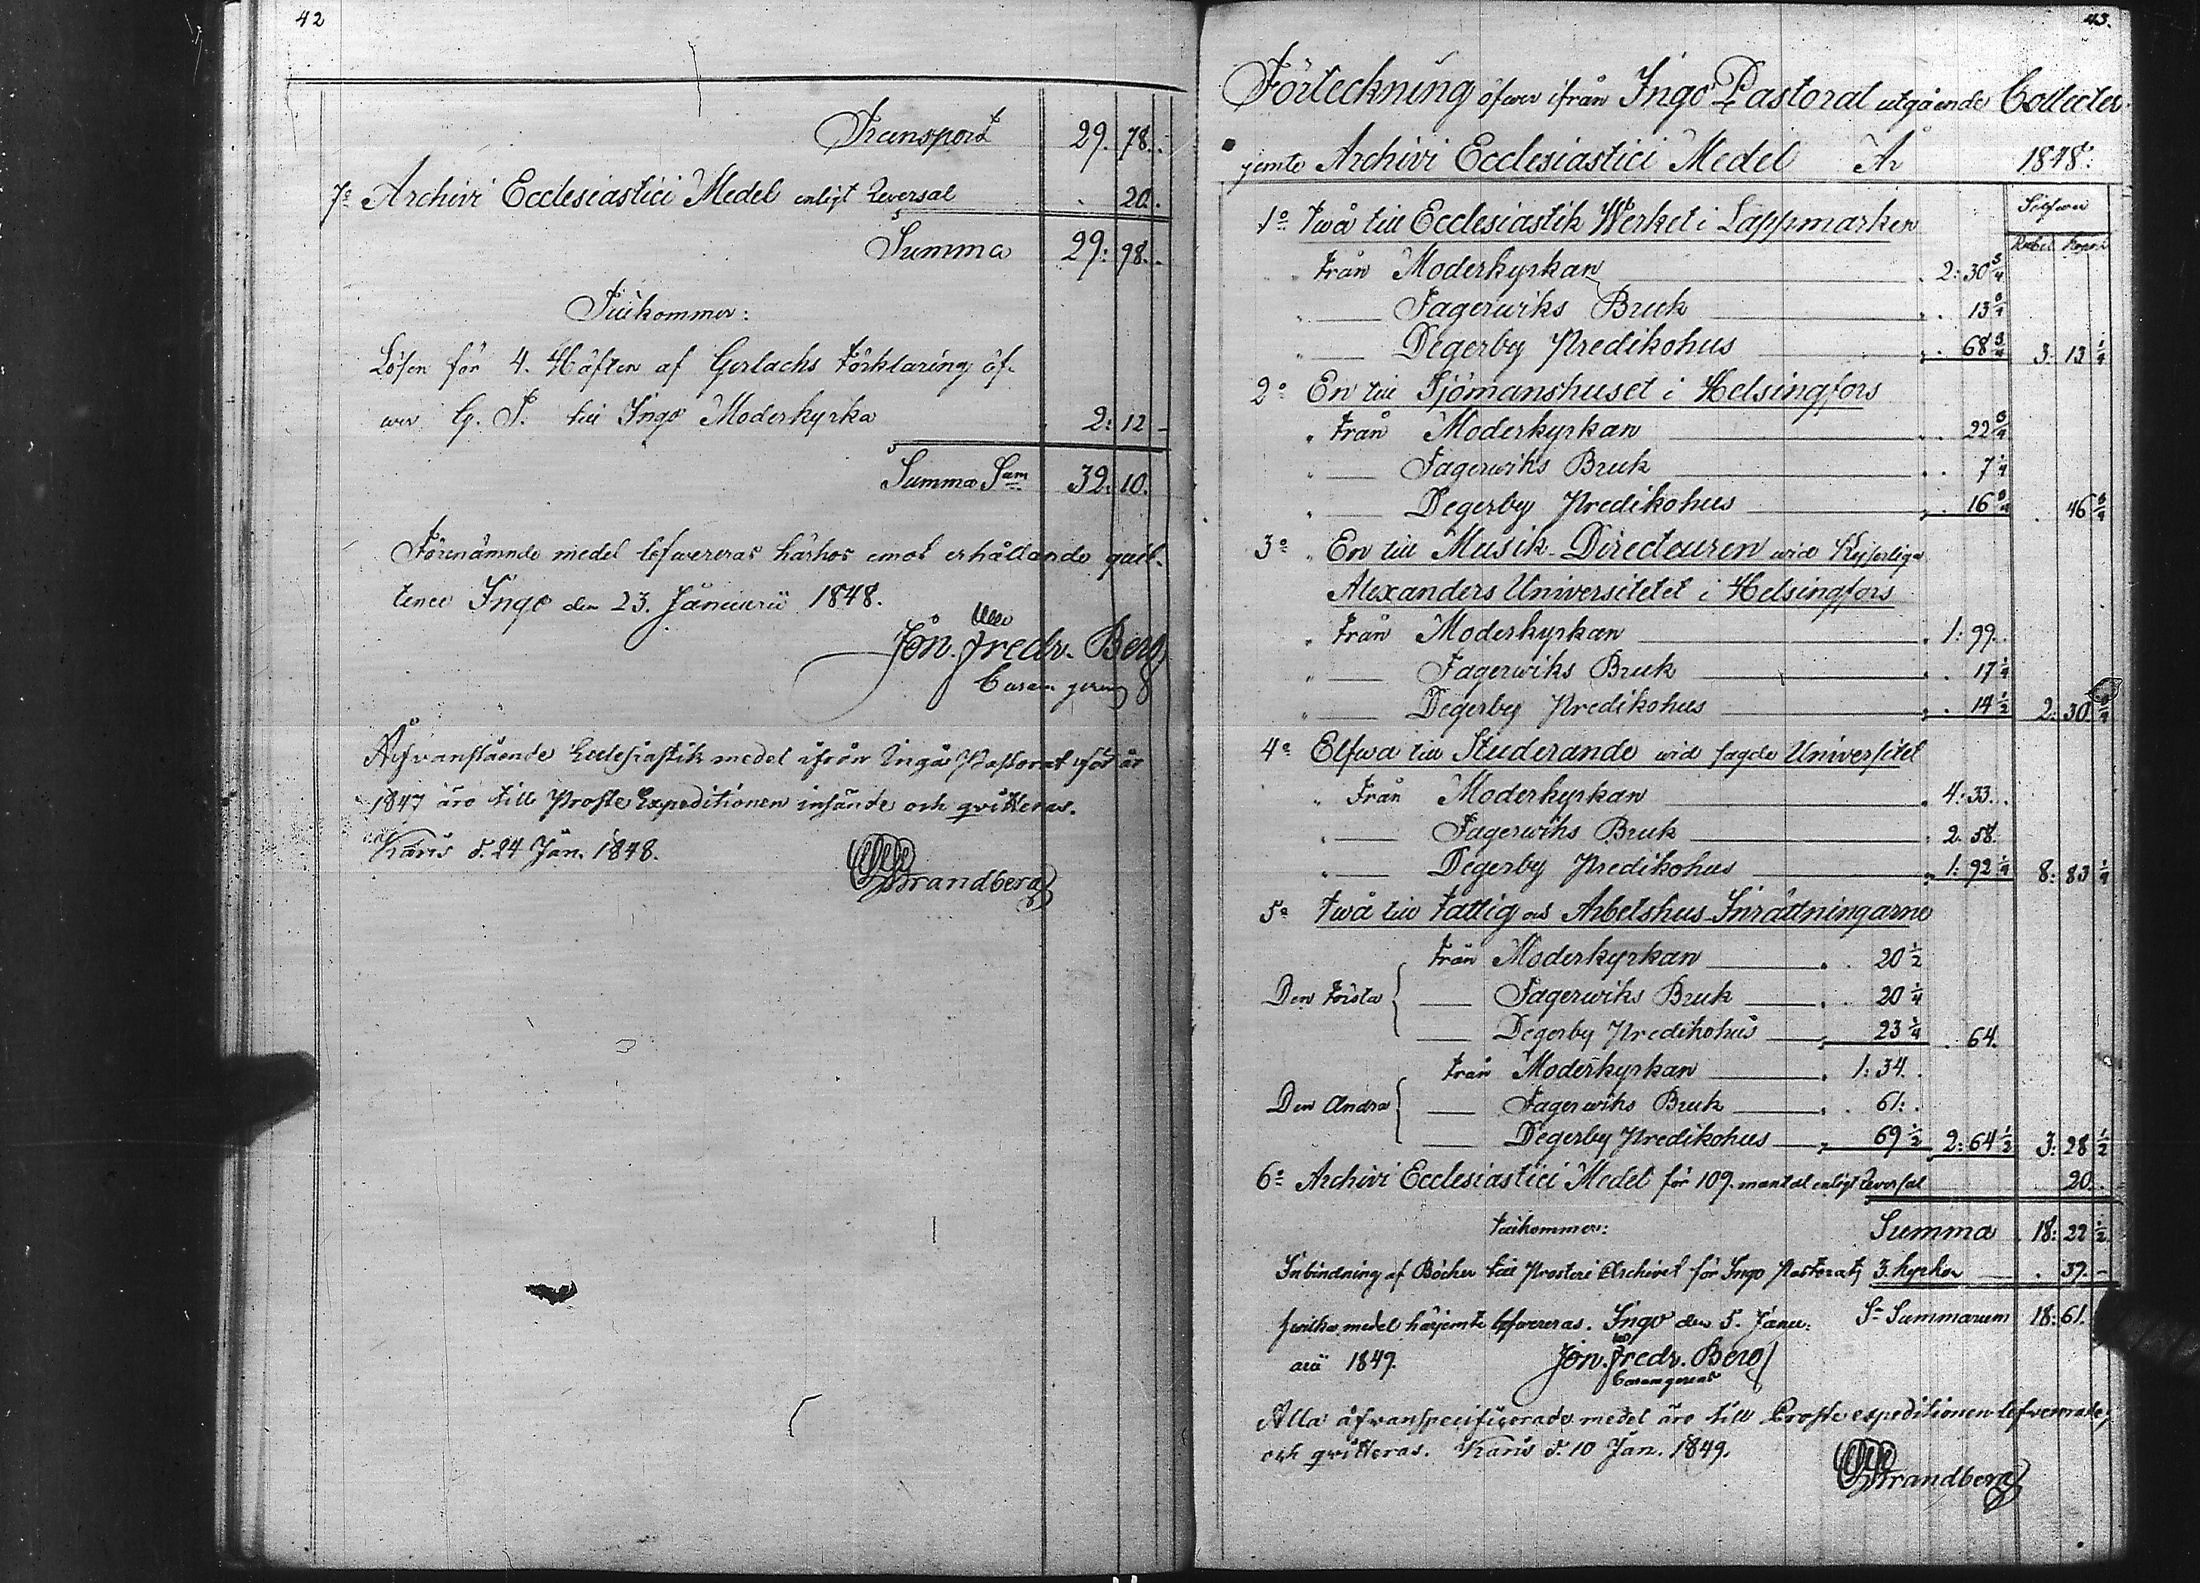 42
Transport 29. 78.
7o Archivi Ecclesiastici Medel enligt Reversal . 20.
Summa 29: 98.
Tillkommer:
Lösen för 4. Häften af Gerlachs Förklaring öf-
wer G. T. till Ingo Moderkyrka 2: 12 -
Summa Sam 32. 10.
Förenämnde medel lefwereras härhos emot erhållande quit-
tence Ingo den 23. Januarii 1848.
Jon. Fredr. Berg
Curam gerens
Åfvanstående Ecclesiastik medel ifrån Ingå Pastorat för år
1847 äro till Proste Expeditionen insände och qvitteras.
Karis d. 24 Jan. 1848.
Strandberg
43.
Förteckning öfwer ifrån Ingo Pastorat utgående Collecter
jemte Archivi Ecclesiastici Medel År 1848.
Silfwer
1o Twå till Ecclesiastik Werket i Lappmarken
Rubel Kopek
Från Moderkyrkan 2: 30 3/4
" — Fagerwiks Bruk 13 3/4
" — Degerby Predikohus 68 3/4 3: 13 1/4
2o En till Sjömanshuset i Helsingfors
" Från Moderkyrkan 22 3/4
" — Fagerwiks Bruk 7 1/4
" — Degerby Predikohus 16 3/4 . 46 3/4
3o En till Musik-Directeuren wid Kejserliga
Alexanders Universitetet i Helsingfors
" Från Moderkyrkan 1: 99.
" — Fagerwiks Bruk 17 1/4
" — Degerby Predikohus 14 1/2 2: 30 3/4
4o Elfwa till Studerande wid sagde Universitet
" Från Moderkyrkan 4: 33.
" — Fagerwiks Bruk 2. 58.
" — Degerby Predikohus 1: 92 1/4 8: 83 1/4
5o Twå till Fattig och Arbetshus-Inrättningarne
Från Moderkyrkan 20 1/2
Den Första { — Fagerwiks Bruk 20 1/4
— Degerby Predikohus 23 1/4 . 64.
Från Moderkyrkan 1: 34.
Den Andra { — Fagerwiks Bruk 61:
— Degerby Predikohus 69 1/2 2: 64 1/2 3: 28 1/2
6o Archivi Ecclesiastici Medel för 109. mantal enligt Reversal 20.
Tillkommer: Summa 18: 22 1/2
Inbindning af Böcker till Prosteri Archivet för Ingo Pastorats 3. kyrkor 39. -
S:a Summarum 18: 61.
hwilka medel härjemte lefwereras. Ingo den 5. Janu-
arii 1849. Jon. Fredr. Berg
Curam gerens
Alla åfvanspecificerade medel äro till Prosteexpeditionen lefvererade,
och qvitteras. Karis d. 10 Jan. 1849.
Strandberg